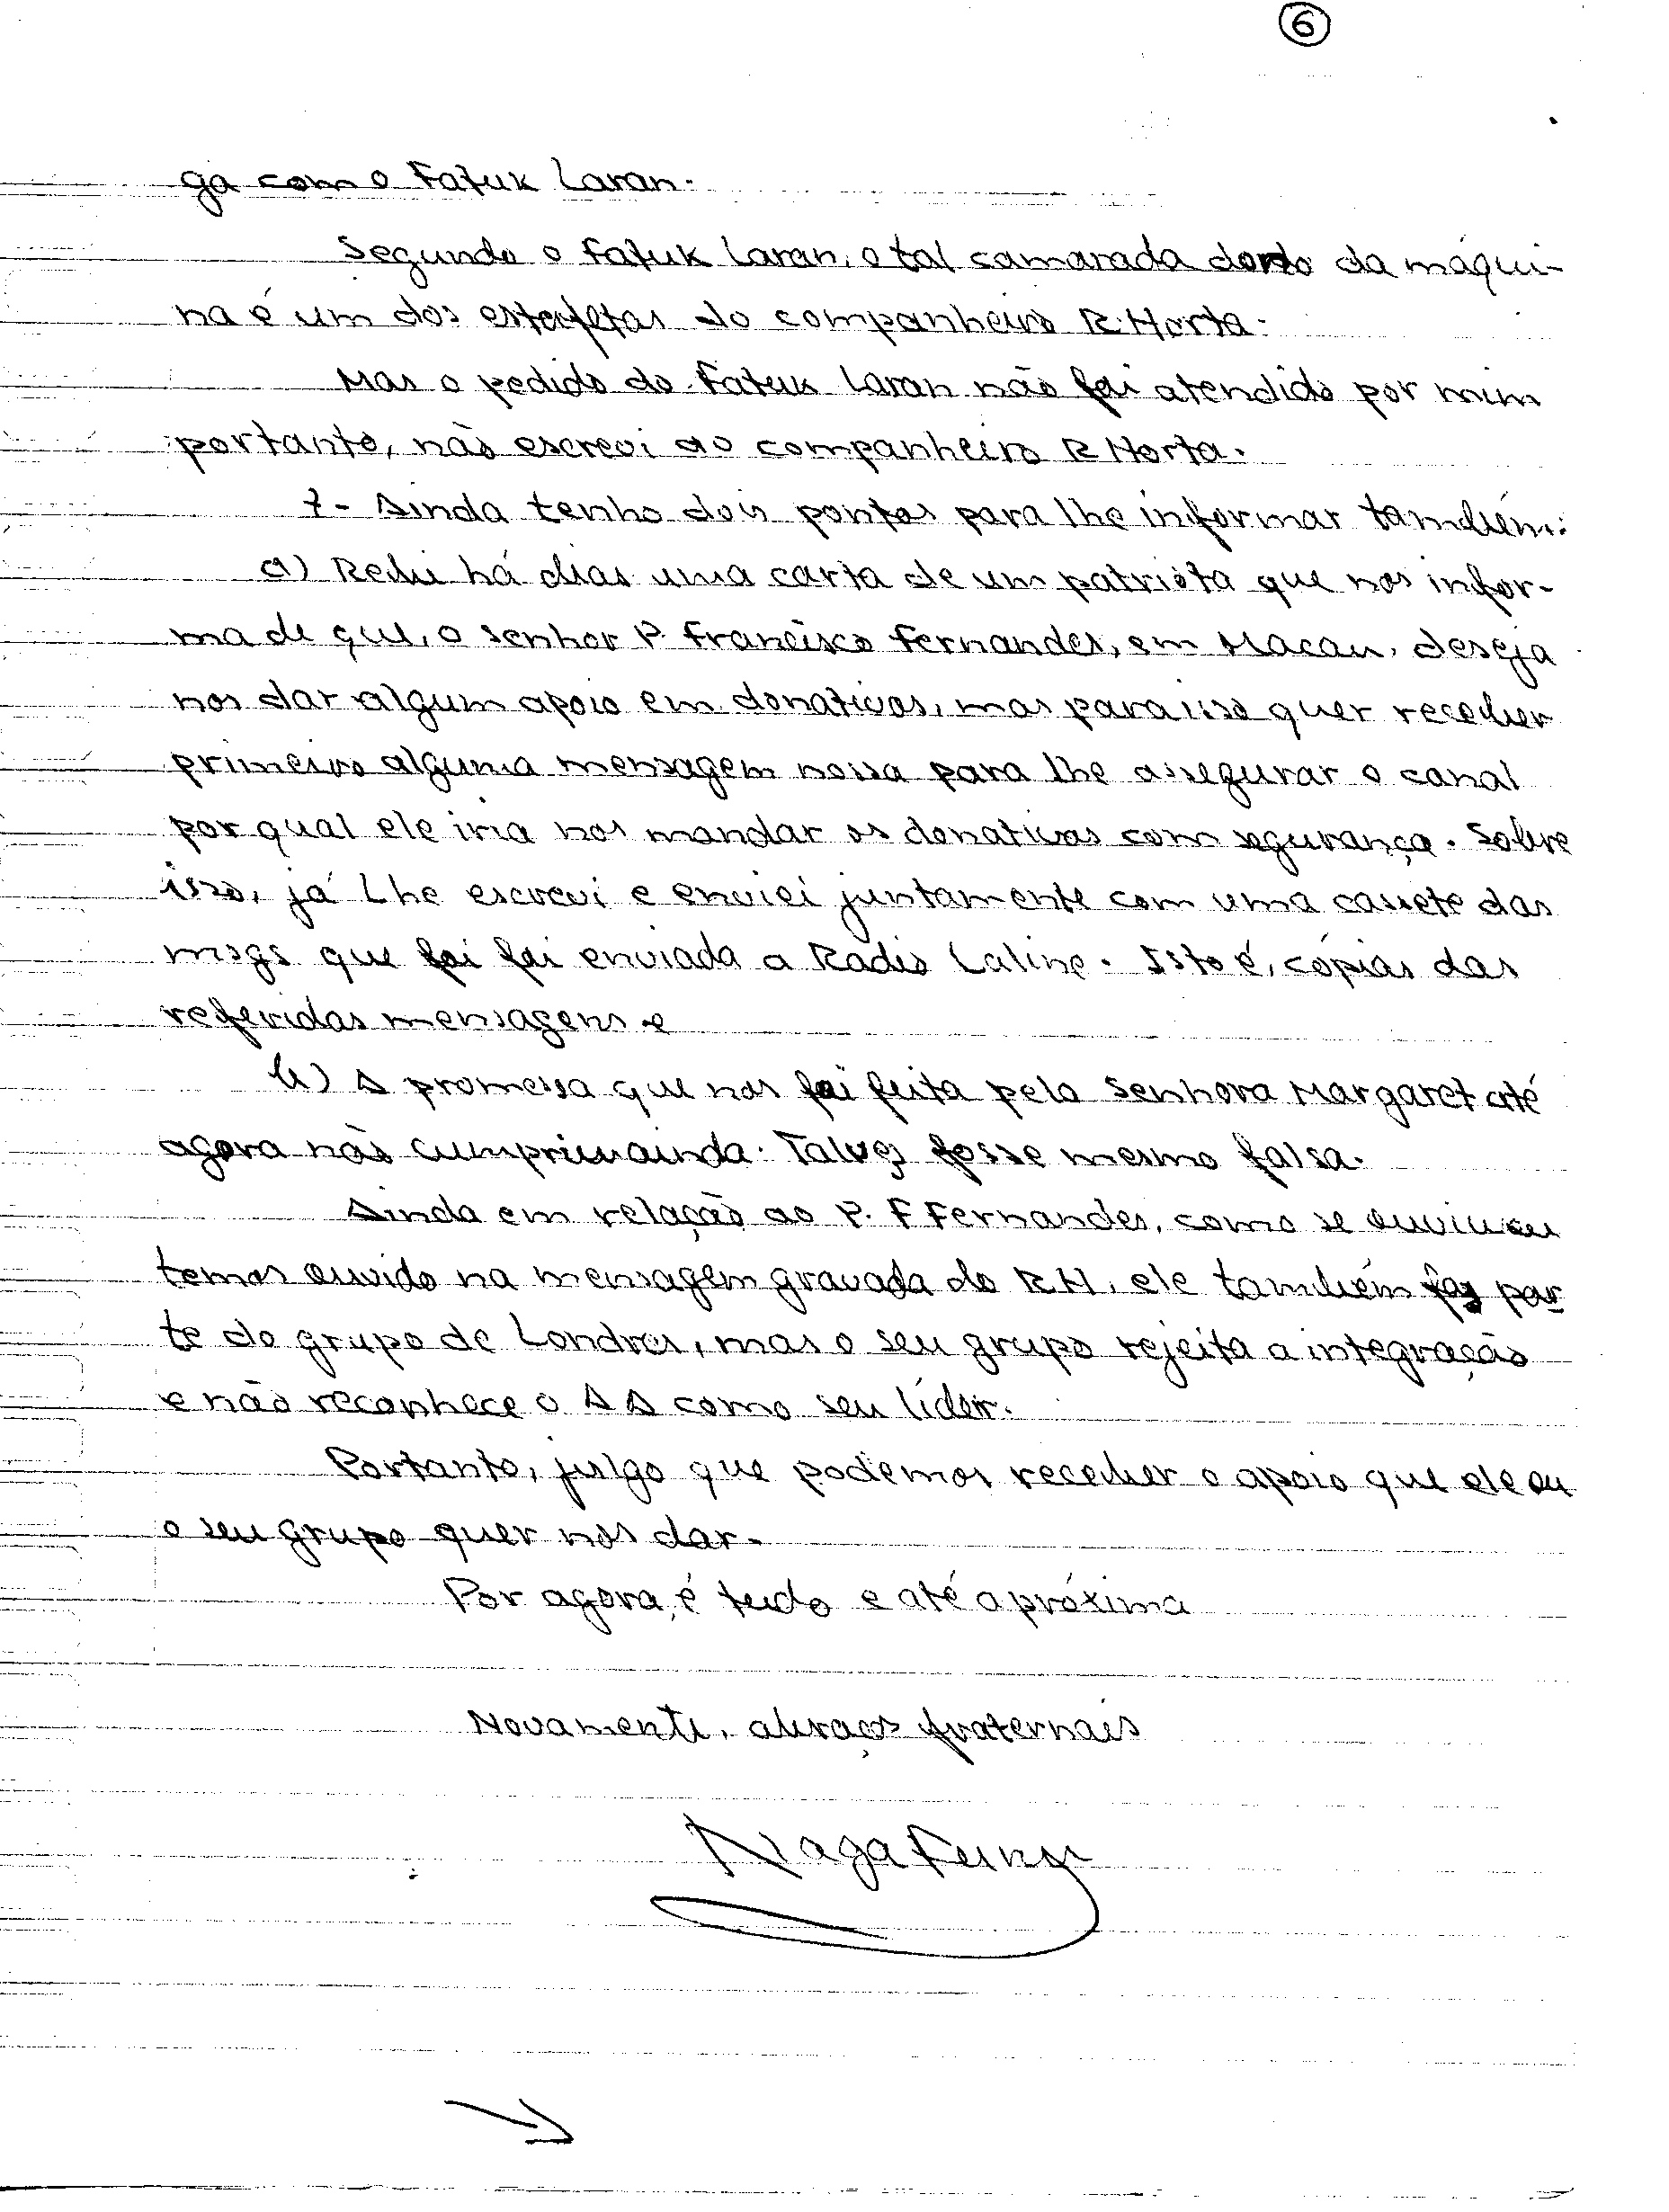 6
ga com o Fatuk Laran.
Segundo o Fatuk Laran, o tal camarada dono da máqui-
na é um dos estafetas do companheiro R. Horta.
Mas o pedido do Fatuk Laran não foi atendido por mim
portanto, não escrevi ao companheiro R Horta.
7 - Ainda tenho dois pontos para lhe informar também:
a) Recebi há dias uma carta de um patriota que nos infor-
ma de que, o senhor P. Francisco Fernandes, em Macau, deseja
nos dar algum apoio em donativos, mas para isso quer receber
primeiro alguma mensagem nossa para lhe assegurar o canal
por qual ele iria nos mandar os donativos com segurança. Sobre
isso, já Lhe escrevi e enviei juntamente com uma cassete das
msgs que foi foi enviada a Radio Laline. Isto é, cópias das
referidas mensagens e
b) A promessa que nos foi feita pela Senhora Margaret até
agora não cumprimainda. Talvez fosse mesmo falsa.
Ainda em relação ao P. F Fernandes, como se ouviu ou
temos ouvido na mensagem gravada do RH, ele também faz par
te do grupo de Londres, mas o seu grupo rejeita a integração
e não reconhece o AA como seu líder.
Portanto, julgo que podemos receber o apoio que ele ou
o seu grupo quer nos dar.
Por agora, é tudo e até a próxima
Novamente, abraços fraternais